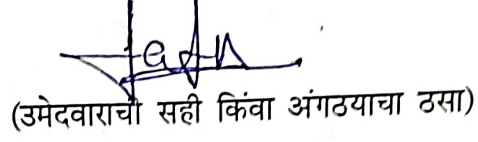 (उमेदवाराची सही किंवा अंगठयाचा ठसा)